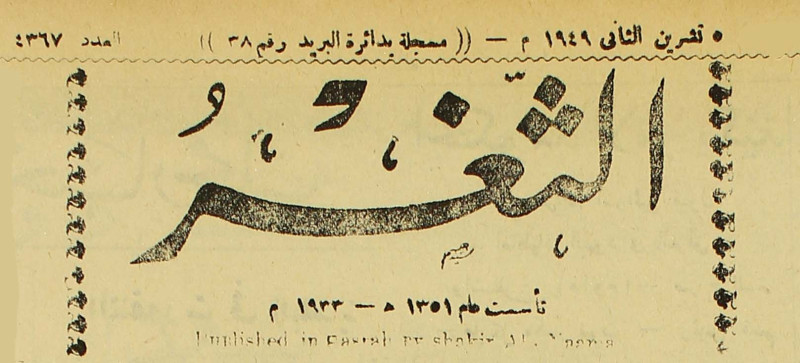 ٥ تشرين الثانى ١٩٤٩ م — (( مسجلة بدائرة البريد رقم ٣٨ )) العدد ٤٣٦٧
الثغر
تأسست عام ١٣٥١ ه — ١٩٣٣ م
Published in Basrah by shakir Al.